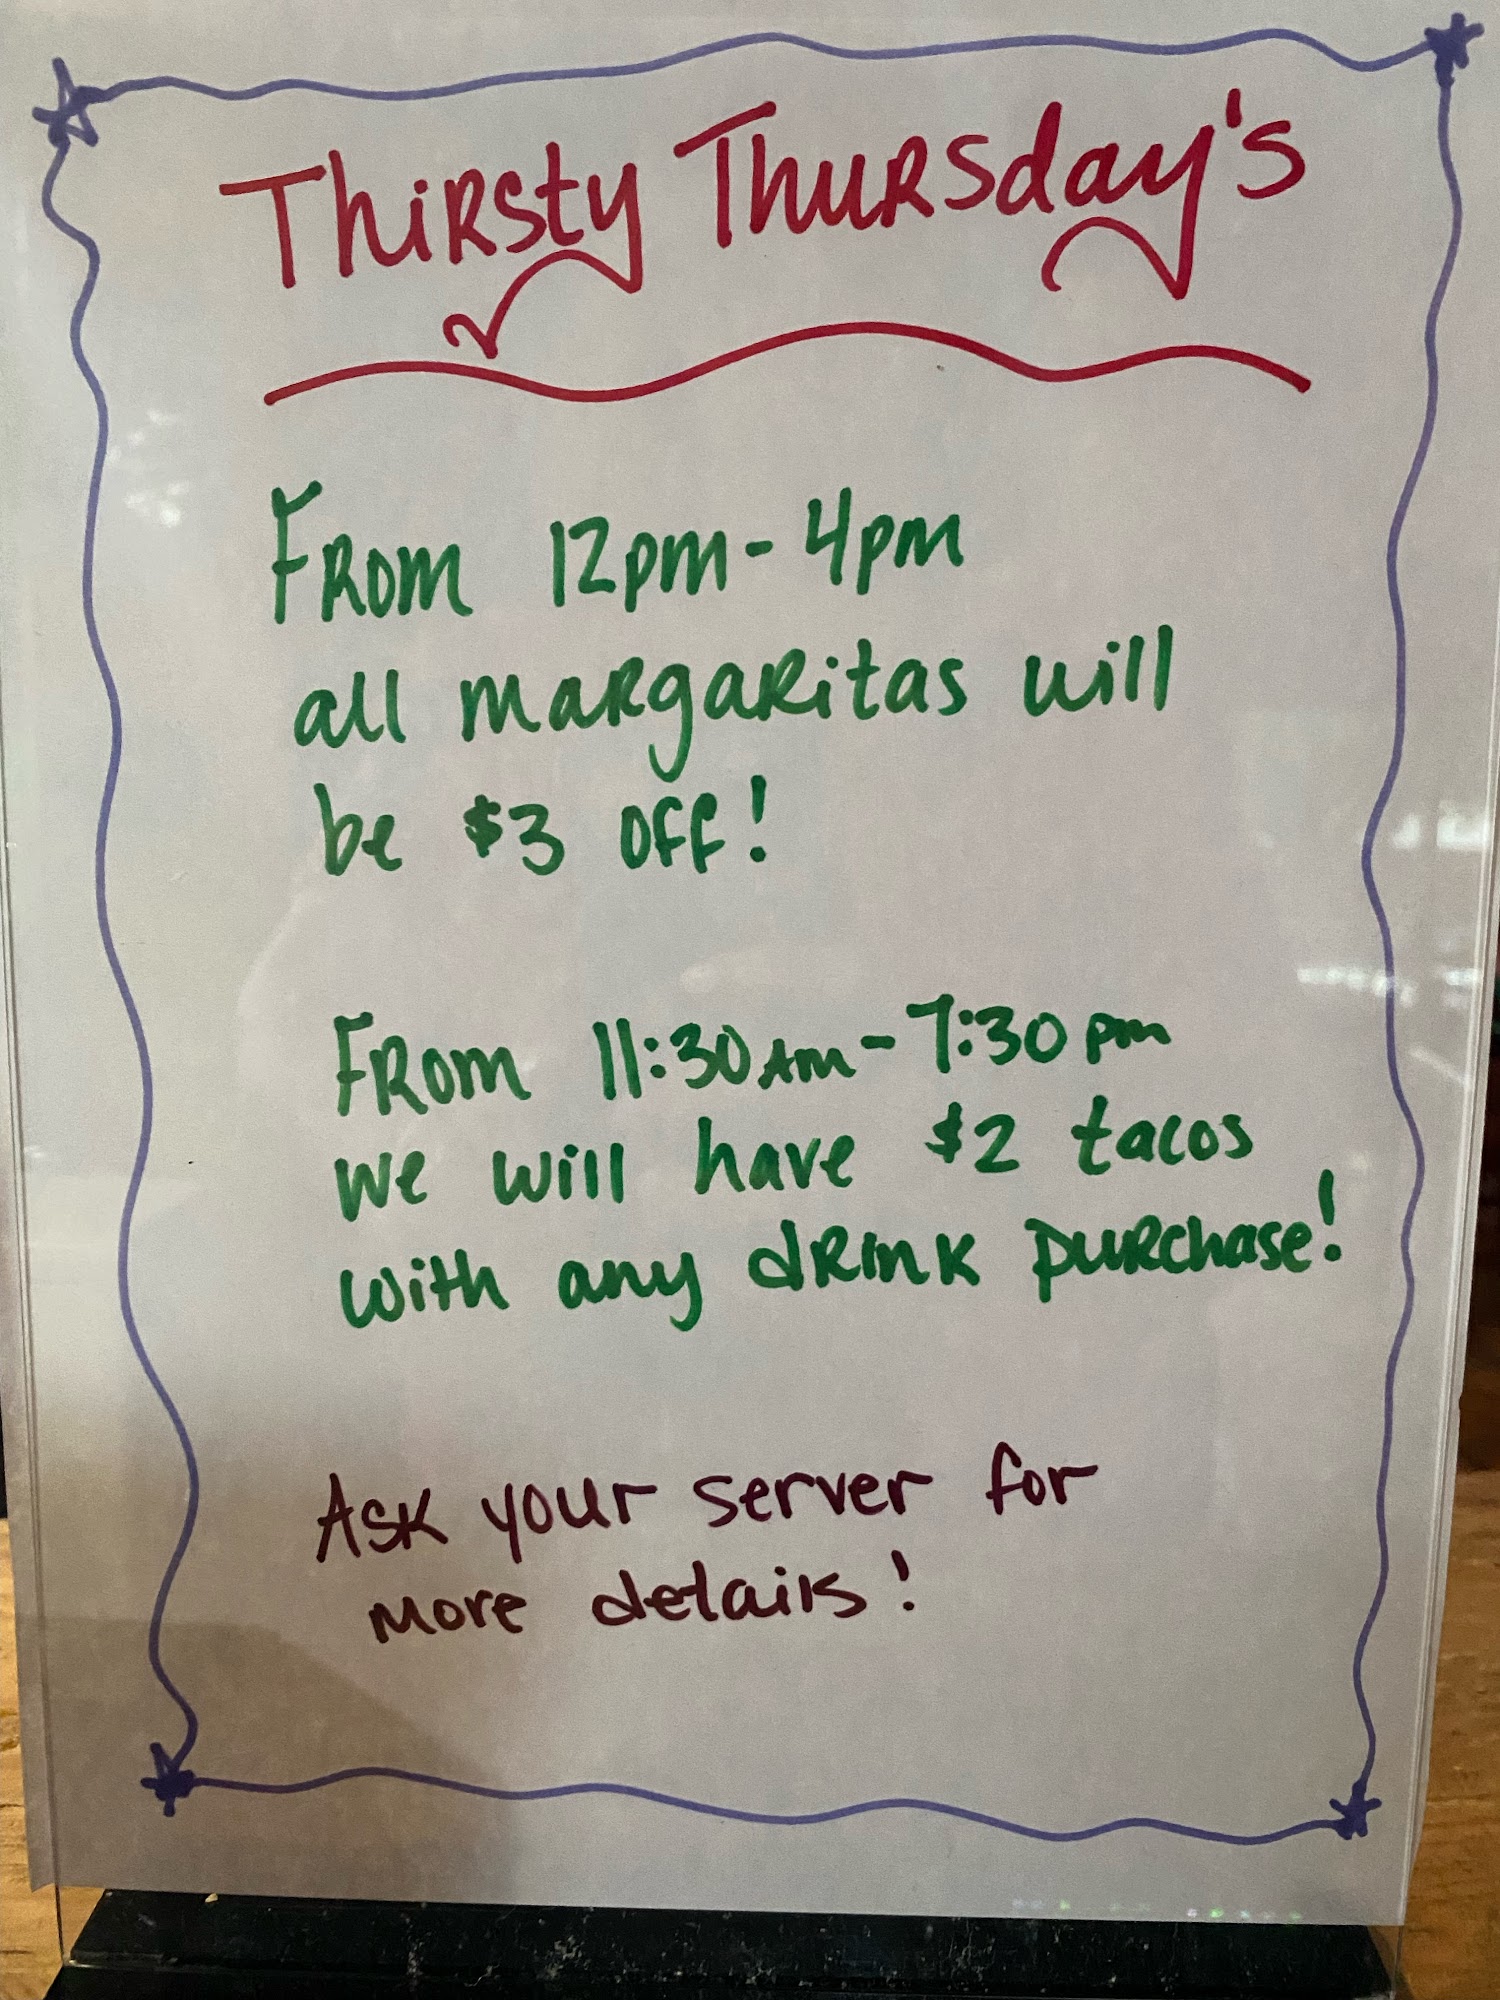 Thirsty Thursday's
From 12pm - 4pm
all margaritas will
be $3 off!
From 11:30AM - 7:30pm
we will have $2 tacos
with any drink purchase!
Ask your server for
more details!